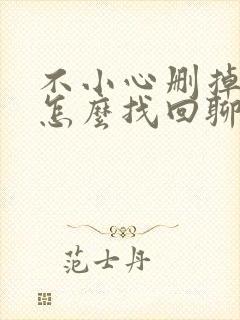 不小心删掉
怎麼找回聊
范士丹